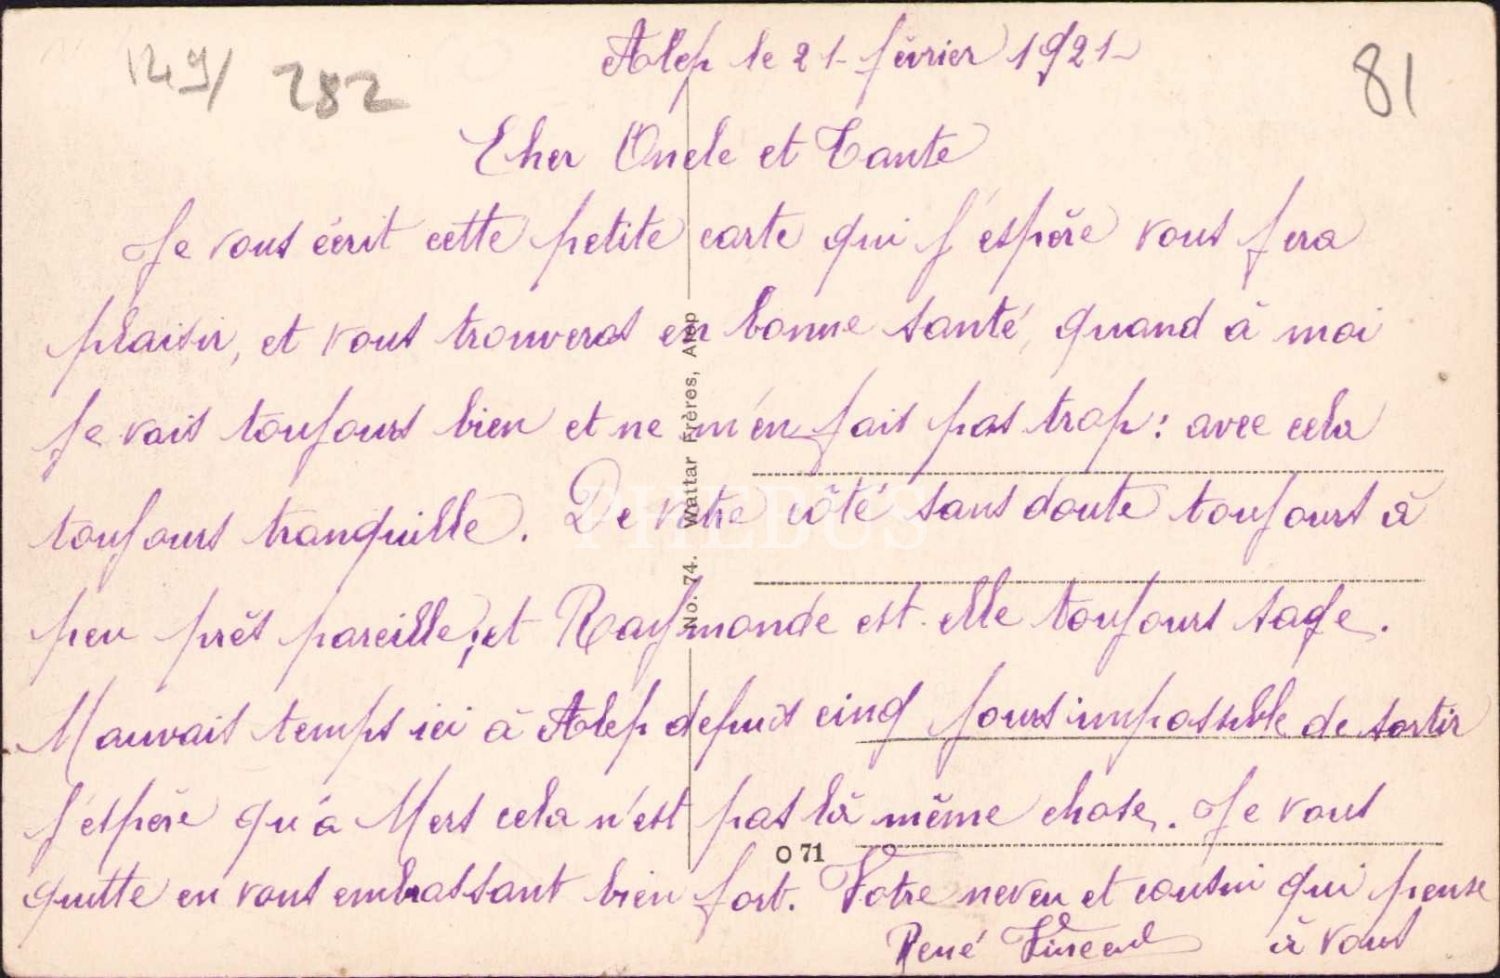 Alep le 21 février 1921
149/ 282
81
Cher Oncle et Tante
Je vous écrit cette petite carte qui j'espère vous fera
plaisir, et vous trouveras en bonne santé, quand à moi
je vais toujours bien et ne m'en fais pas trop: avec cela
toujours tranquille. De votre côté sans doute toujours à
peu près pareille, et Raymonde est-elle toujours sage.
Mauvais temps ici à Alep depuis cinq jours impossible de sortir
j'espère qu'à Mers cela n'est pas là même chose. Je vous
quitte en vous embrassant bien fort. Votre neveu et cousin qui pense
René à vous
No. 74. Wattar Frères, Alep
O 71
PHEBUS